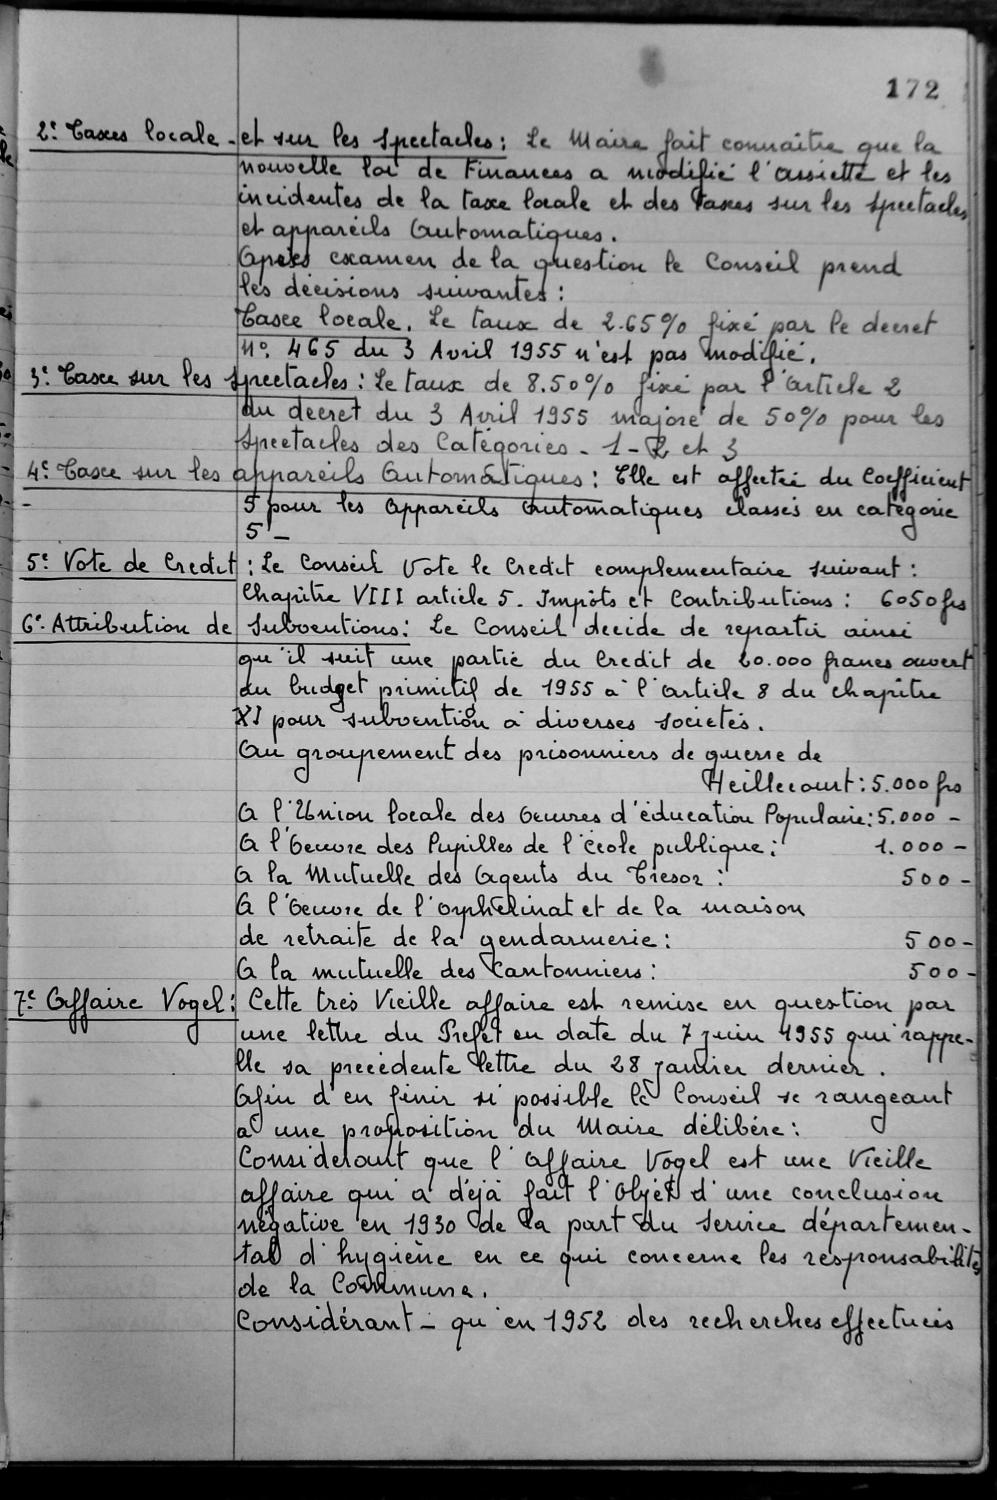 172
2º Taxes locale - et sur les spectacles : Le Maire fait connaitre que la
nouvelle loi de Finances a modifié l'assiette et les
incidentes de la taxe locale et des Taxes sur les spectacles
et appareils Automatiques.
Après examen de la question le Conseil prend
les décisions suivantes :
Taxe locale. Le taux de 2.65% fixé par le decret
nº. 465 du 3 Avril 1955 n'est pas modifié.
3º Taxe sur les spectacles : Le taux de 8.50% fixé par l'article 2
du decret du 3 Avril 1955 majoré de 50% pour les
spectacles des Catégories - 1 - 2 et 3
4º Taxe sur les appareils Automatiques : Elle est affectée du Coefficient
5 pour les Appareils automatiques classés en catégorie
5 -
5º Vote de Credit : Le Conseil Vote le Credit complementaire suivant :
Chapitre VIII article 5. Impôts et Contributions : 6050 frs
6º Attribution de Subventions : Le Conseil decide de repartir ainsi
qu'il suit une partie du Credit de 20.000 francs ouvert
au budget primitif de 1955 à l'article 8 du chapitre
XI pour subvention à diverses societés.
Au groupement des prisonniers de guerre de
Heillecourt : 5.000 frs
A l'Union locale des Oeuvres d'éducation Populaire : 5.000 -
A l'Oeuvre des Pupilles de l'école publique : 1.000 -
A la Mutuelle des Agents du Trésor : 500 -
A l'Oeuvre de l'orphelinat et de la maison
de retraite de la gendarmerie : 500 -
A la mutuelle des Cantonniers : 500 -
7º Affaire Vogel : Cette très Vieille affaire est remise en question par
une lettre du Prefet en date du 7 juin 1955 qui rappe-
lle sa precédente lettre du 28 Janvier dernier.
Afin d'en finir si possible le Conseil se rangeant
a une proposition du Maire délibére :
Considerant que l'Affaire Vogel est une Vieille
affaire qui a déjà fait l'objet d'une conclusion
négative en 1930 de la part du Service départemen-
tal d'hygiène en ce qui concerne les responsabilités
de la Commune.
Considérant - qu'en 1952 des recherches effectuées